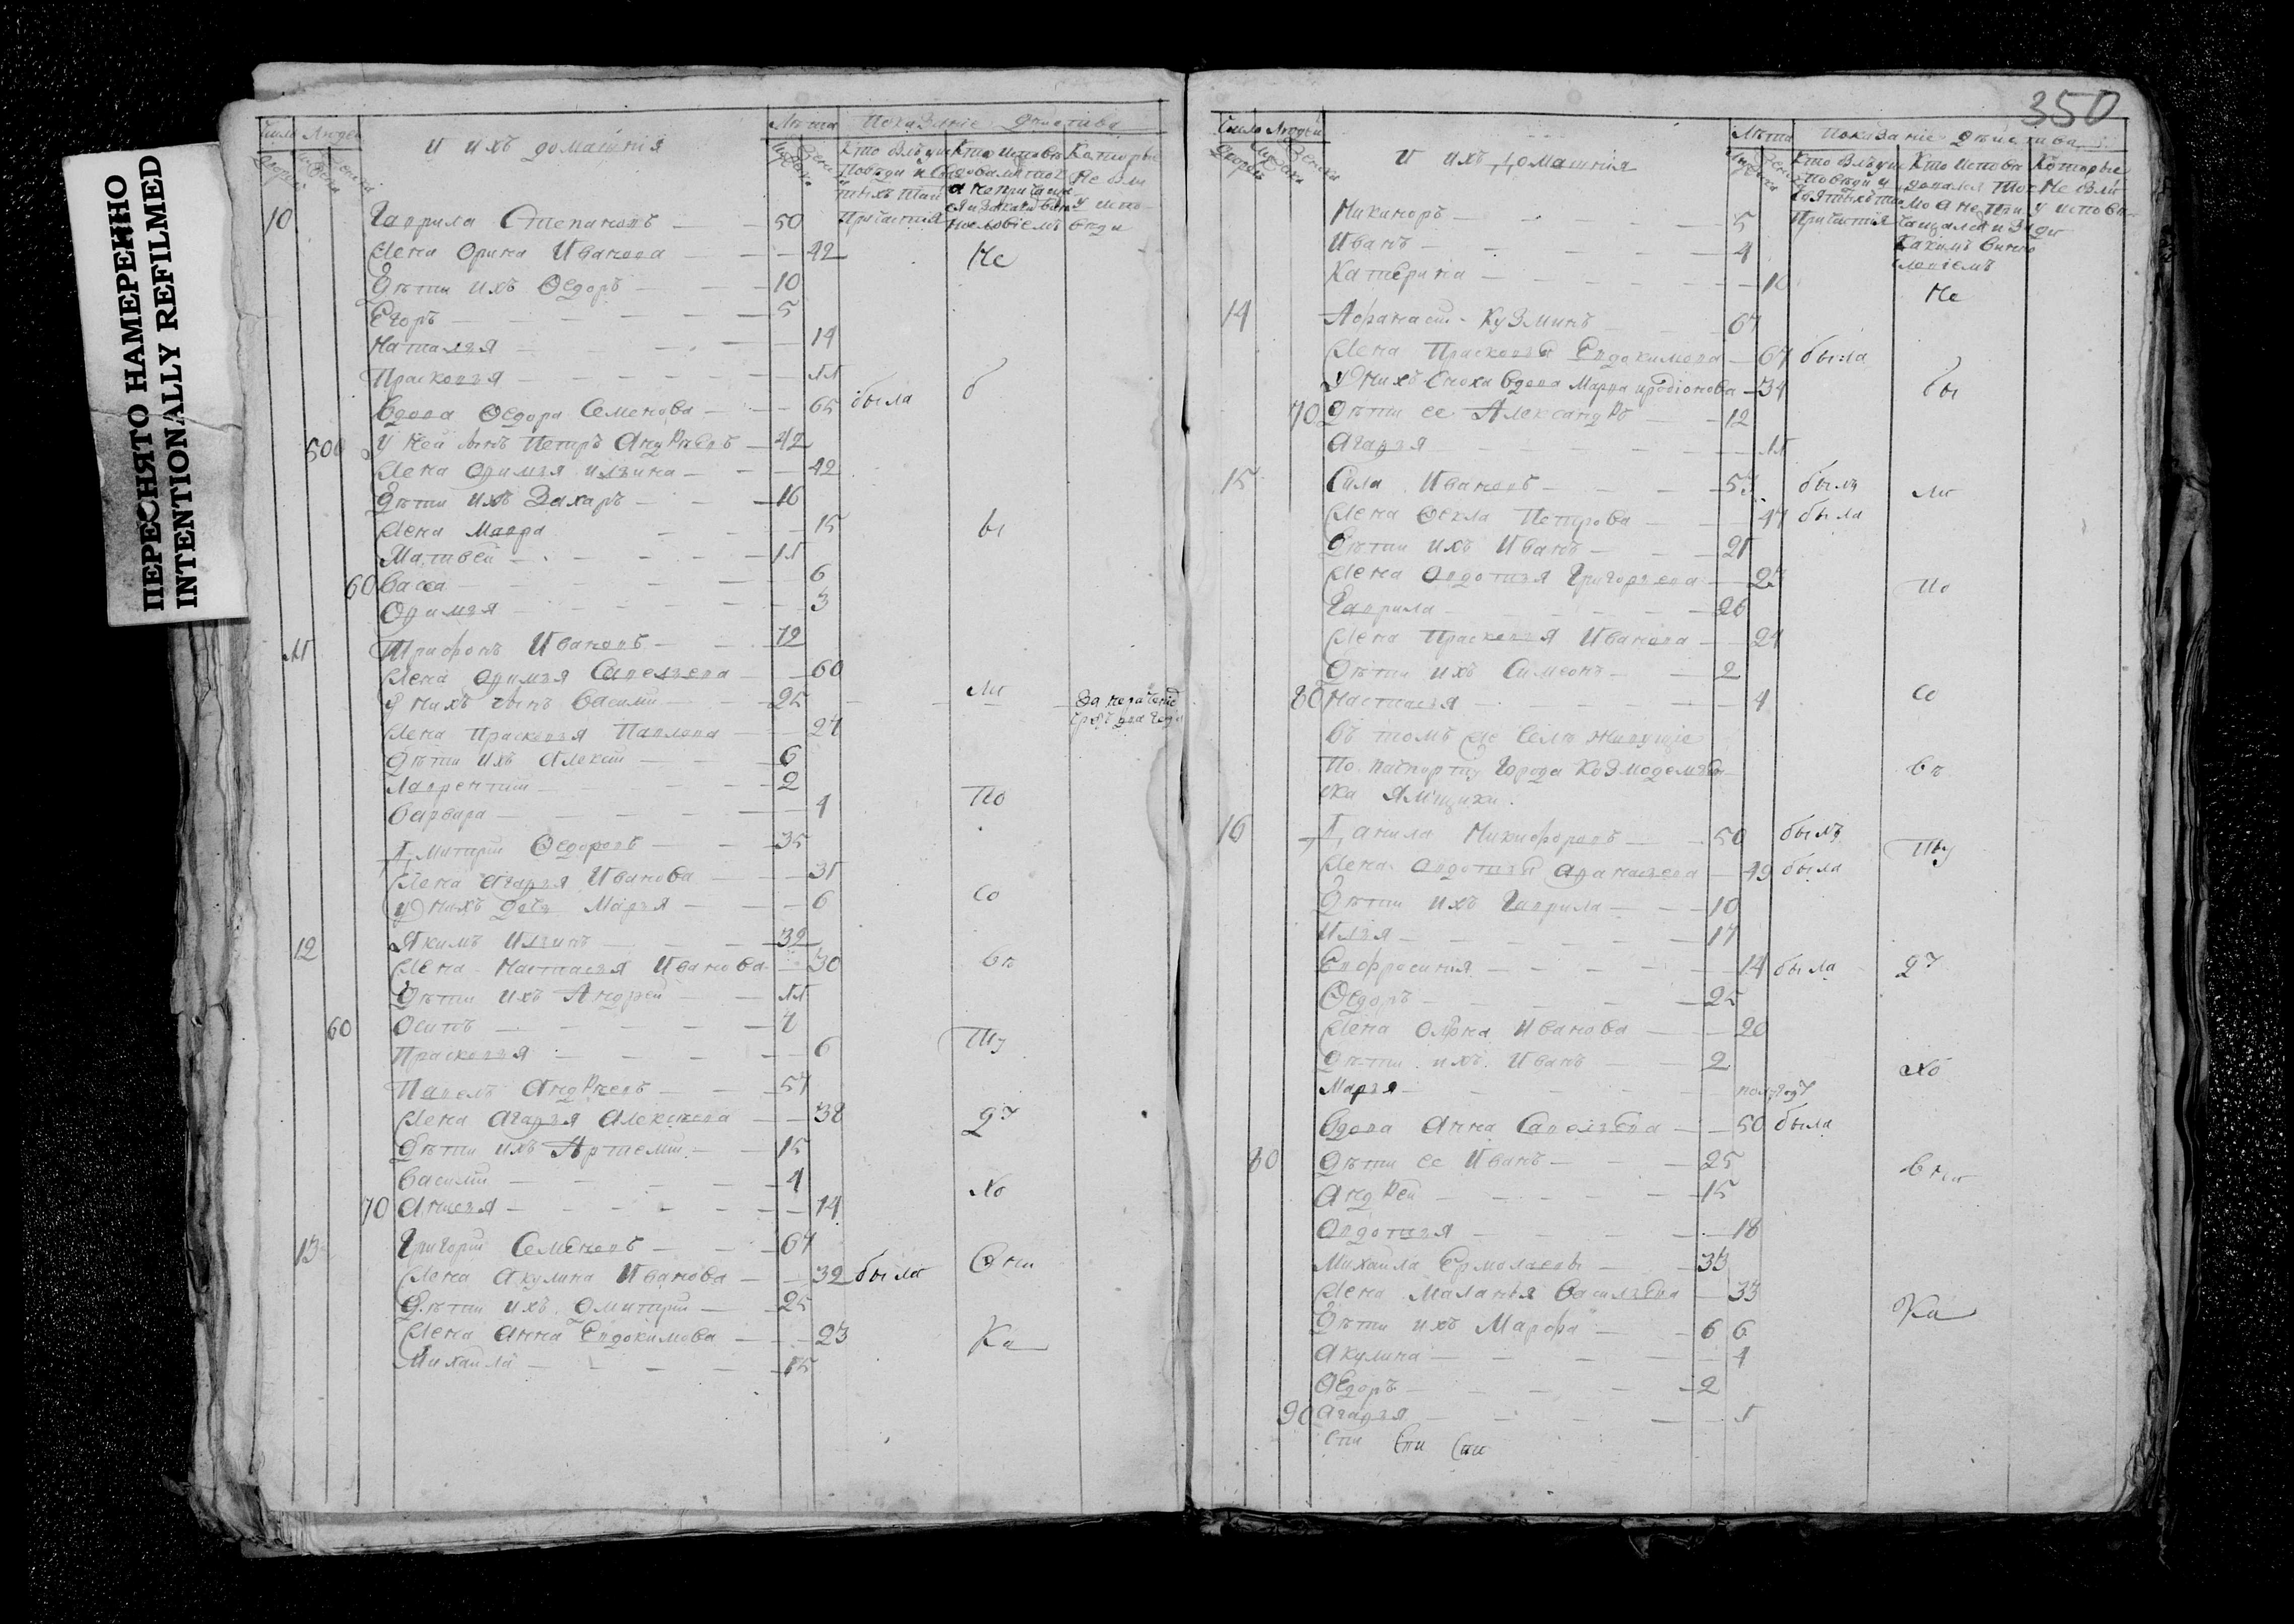 ПЕРЕСНЯТО НАМЕРЕННО
INTENTIONALLY REFILMED
Число Людей
и ихъ домашнія
Лѣта
Показаніе действа
10 Гаврила Степановъ 50
Жена Орина Иванова 42 Не
Дѣти ихъ Ѳедоръ 10
Егоръ 5
Наталья 14
Прасковья 11
Вдова Ѳедора Семенова 65 была б
500 у ней сынъ Петръ Андреевъ 42
Жена Офимья Ильина 42
Дѣти ихъ Захаръ 16
Жена Мавра 15 ы
Матвей 11
60 Васса 6
Офимья 3
11 Трифонъ Ивановъ 72
Жена Офимья Савельева 60
у нихъ сынъ Василий 25 ли
Жена Прасковья Павлова 27
Дѣти ихъ Алексѣй 6
Лаврентий 2
Варвара 4 По
Дмитрий Ѳедоровъ 35
Жена Агафья Иванова 31
у нихъ дочь Марья 6 со
12 Якимъ Ильинъ 32
Жена Настасья Иванова 30 вѣ
Дѣти ихъ Андрей 11
60 Осипъ 7
Прасковья 6 ту
Павелъ Андреевъ 57
Жена Агафья Алексеева 38 ду
Дѣти ихъ Артемий 15
Василий 4 хо
70 Анисья 14
13 Григорий Семеновъ 67
Жена Акулина Иванова 32 была вни
Дѣти ихъ Дмитрий 25
Жена Анна Евдокимова 23 Ка
Михаила 15
350
Число Людей
и ихъ домашнія
Лѣта
Показаніе действа
Никаноръ 5
Иванъ 4
Катерина 10 Не
14 Афанасий Кузминъ 67
Жена Прасковья Евдокимова 67 была
у нихъ сноха вдова Марва Иродіонова 34 бы
70 Дѣти ее Александръ 12
Агафья 11
15 Сила Ивановъ 53 былъ ли
Жена Ѳекла Петрова 47 была
Дѣти ихъ Иванъ 21
Жена Авдотья Григорьева 23 По
Гаврила 26
Жена Прасковья Иванова 24
Дѣти ихъ Симеонъ 2
80 Настасья 4 Со
Въ томъ же селѣ живущіе
По паспорту города Козмодемьян
ска Ямщики. вѣ
16 Данила Никифоровъ 50 былъ
Жена Авдотья Афанасьева 49 была ту
Дѣти ихъ Гаврила 10
Илья 17
Евфросинья 14 была ду
Ѳедоръ 25
Жена Олена Иванова 20
Дѣти ихъ Иванъ 2 хо
Марья полгоду
Вдова Анна Савельева 50 была
80 Дѣти ее Иванъ 25 вни
Андрей 15
Авдотья 18
Михаила Ермолаевъ 33
Жена Маланья Васильева 33
Дѣти ихъ Марфа 6 6 Ка
Акулина 4
Ѳедоръ 2
90 Агафья 1